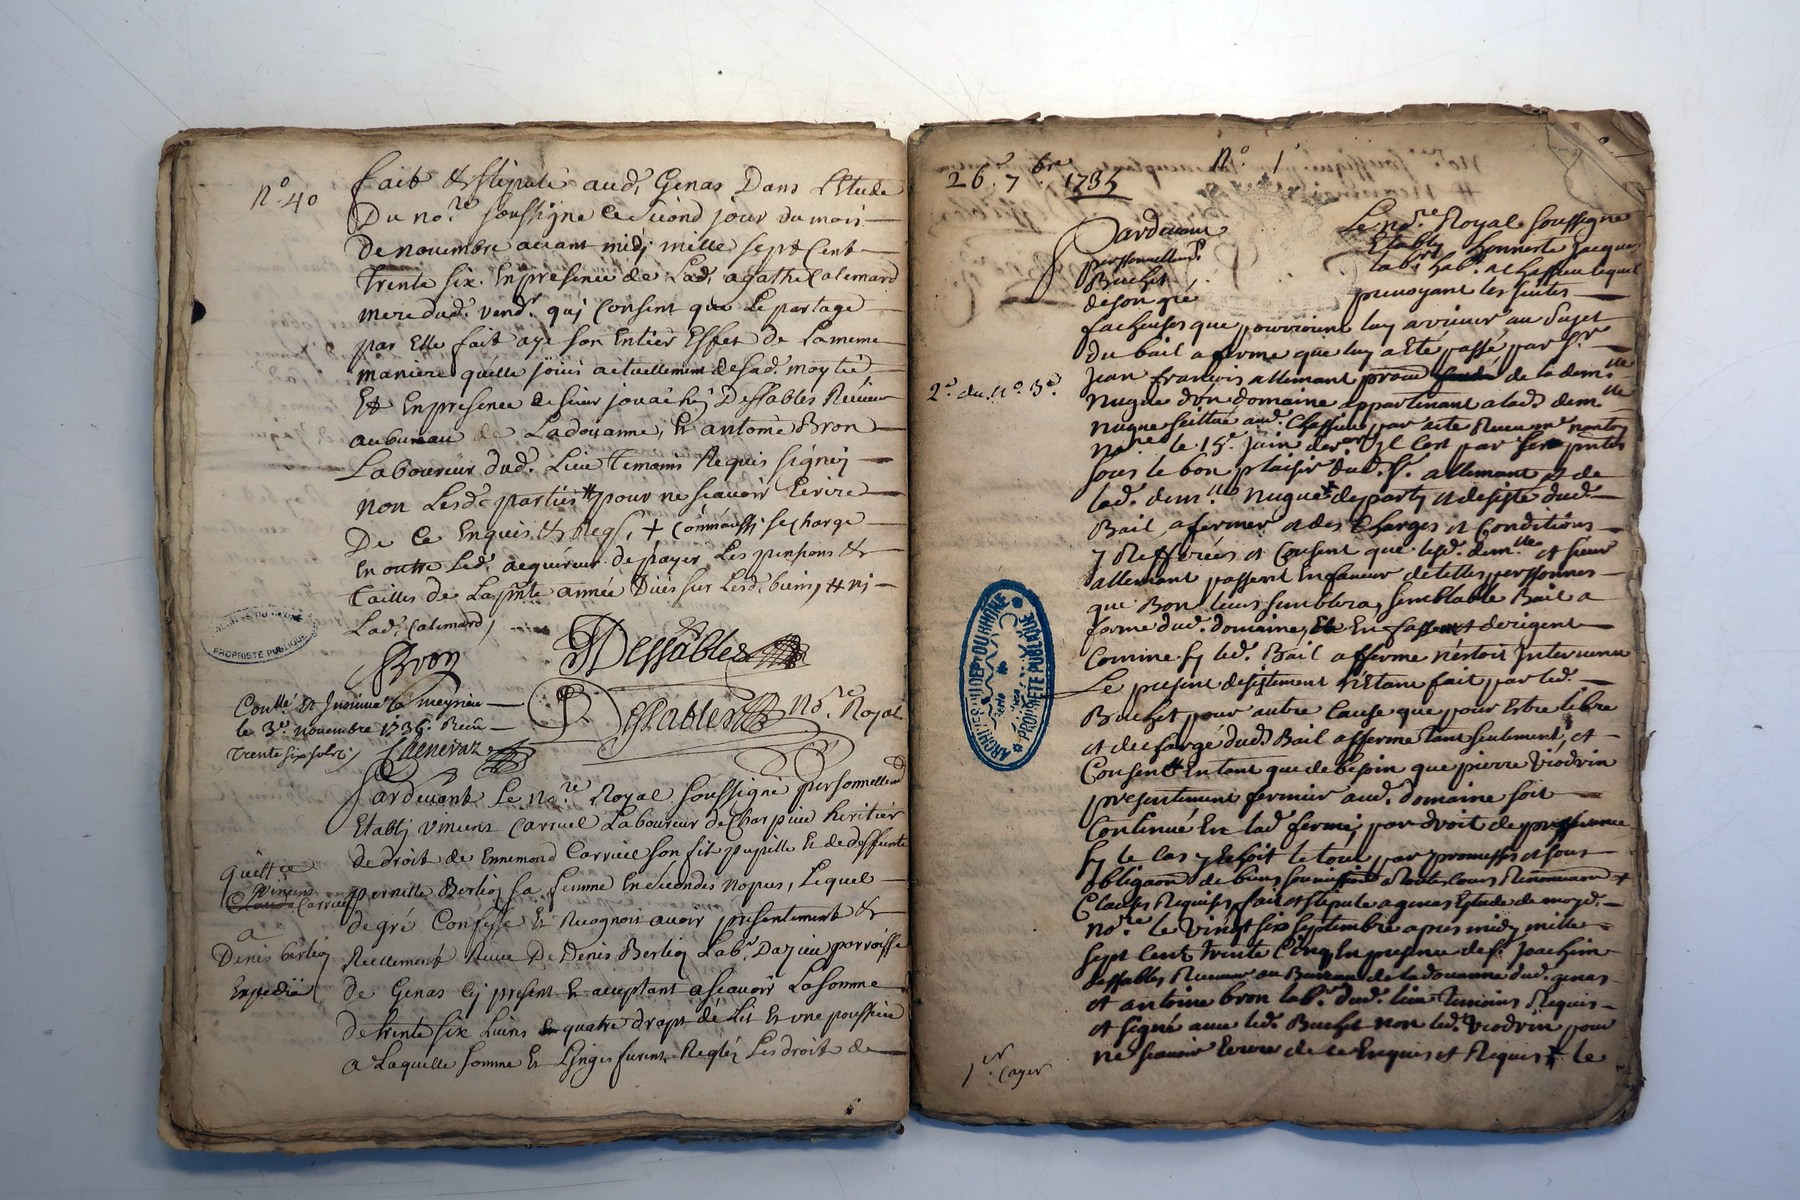 n.º 40
fait & stipulé aud. Genas Dans L'Etude
Du no.re soussigné ce second jour du mois
De novembre avant midj mille sept Cent
trente six. En presence de Lad. agathe Calemard
mere dud. vend. quj consent que Le partage
par Elle fait aye son Entier Effet de La meme
maniere qu'elle jouit actuellement de sad. moytié
Et En presence de sieur jouachin Dessables Receveur
au bureau de La doüanne, Et antoine Bron
Laboureur dud. Lieu temoins Requis signéz
non Lesd. parties # pour ne scavoir Ecrire
De ce Enquis & Reqs, + Comm'aussi se charge
En outre Led. acquereur de payer Les pensions &
Tailles de La pnte année Dües sur Lesd. biens, # ni
Lad. Calemard,
Bron
Dessables
Dessables no.re Royal
Conllé Et Insinué La meyrieu
le 3.e novembre 1736. Receu
trente six sols,
Chenevaz
PROPRIÉTÉ PUBLIQUE
Pardevant Le no.re Royal soussigné personnellemt
Etablj vincens Carruel Laboureur de Charpieu heritier
de droit de Ennemond Carruel son fils pupille & de deffunte
pernette Berlioz sa femme En secondes nopces, Lequel
de gré Confesse Et Recognoit avoir presentement &
Reellement Receu De Denis Berlioz Lab.r D'azieu parroisse
de Genas cy present Et acceptant ascavoir La somme
de trente six Livres Et quatre draps de Lit Et une
a Laquelle somme Et Linges furent Regléz Les droits de
Quittce
Vincens
Claude Carruel
a
Denis berlioz
Expedié
26. 7.bre 1735
n.º 1
Pardevant Le no.re Royal soussigné
personnellemt Etably honneste Jacques
Buchet lab.r hab.t a chassieu lequel
de son gré prevoyant les suites
facheuses que pourroient luy avenir au sujet
du bail a ferme que luy a Eté passé par S.r
Jean francois allemant de la dem.lle
Nugue d'un domaine appartenant a lad. dem.lle
nugue scittué aud. Chassieu, par acte Receu me
2.e du n.º 3.e
no.re le 15.e Juin der.er Il C'est par
sous le bon plaisir dud. S.r allemant et de
lad. dem.lle Nugue departy et desisté dud.
Bail a fermier et des Charges et Conditions
y Refferées et Consent que lesd. dem.lle et sieur
allemant passent En faveur de telles personnes
que Bon leurs semblera, semblable Bail a
ferme dud. domaine, Et En fassent
Comme sy led. Bail a fferme n'estoit Intervenu
Le present desistement n'Etant fait par led.
Buchet pour autre Cause que pour Estre libre
et dechargé dud. Bail a fferme tant seulement, et
Consent En tant que de besoin que pierre Viodrin
presentement fermier aud. domaine soit
Continué En lad. ferme, par droit de
sy le cas y Echoit le tout par promesses et sous
obligaon de biens soumissions a toutes cours Renonciaon +
Clauses Requises, fait et stipulé a genas Etude de moyd.
no.re le vingt six septembre apres midy mille
sept cent trente Cinq En presence de s.r Joachim
dessables Receveur au Bureau de la douanne dud. genas
et antoine bron lab.r dud. lieu temoins Requis
et signé avec led. Buchet non led. Viodrin pour
ne scavoir Ecrire de ce Enquis et Requis le
1.er cayer
ARCHIVES DU DEP.T DU RHÔNE
PROPRIÉTÉ PUBLIQUE